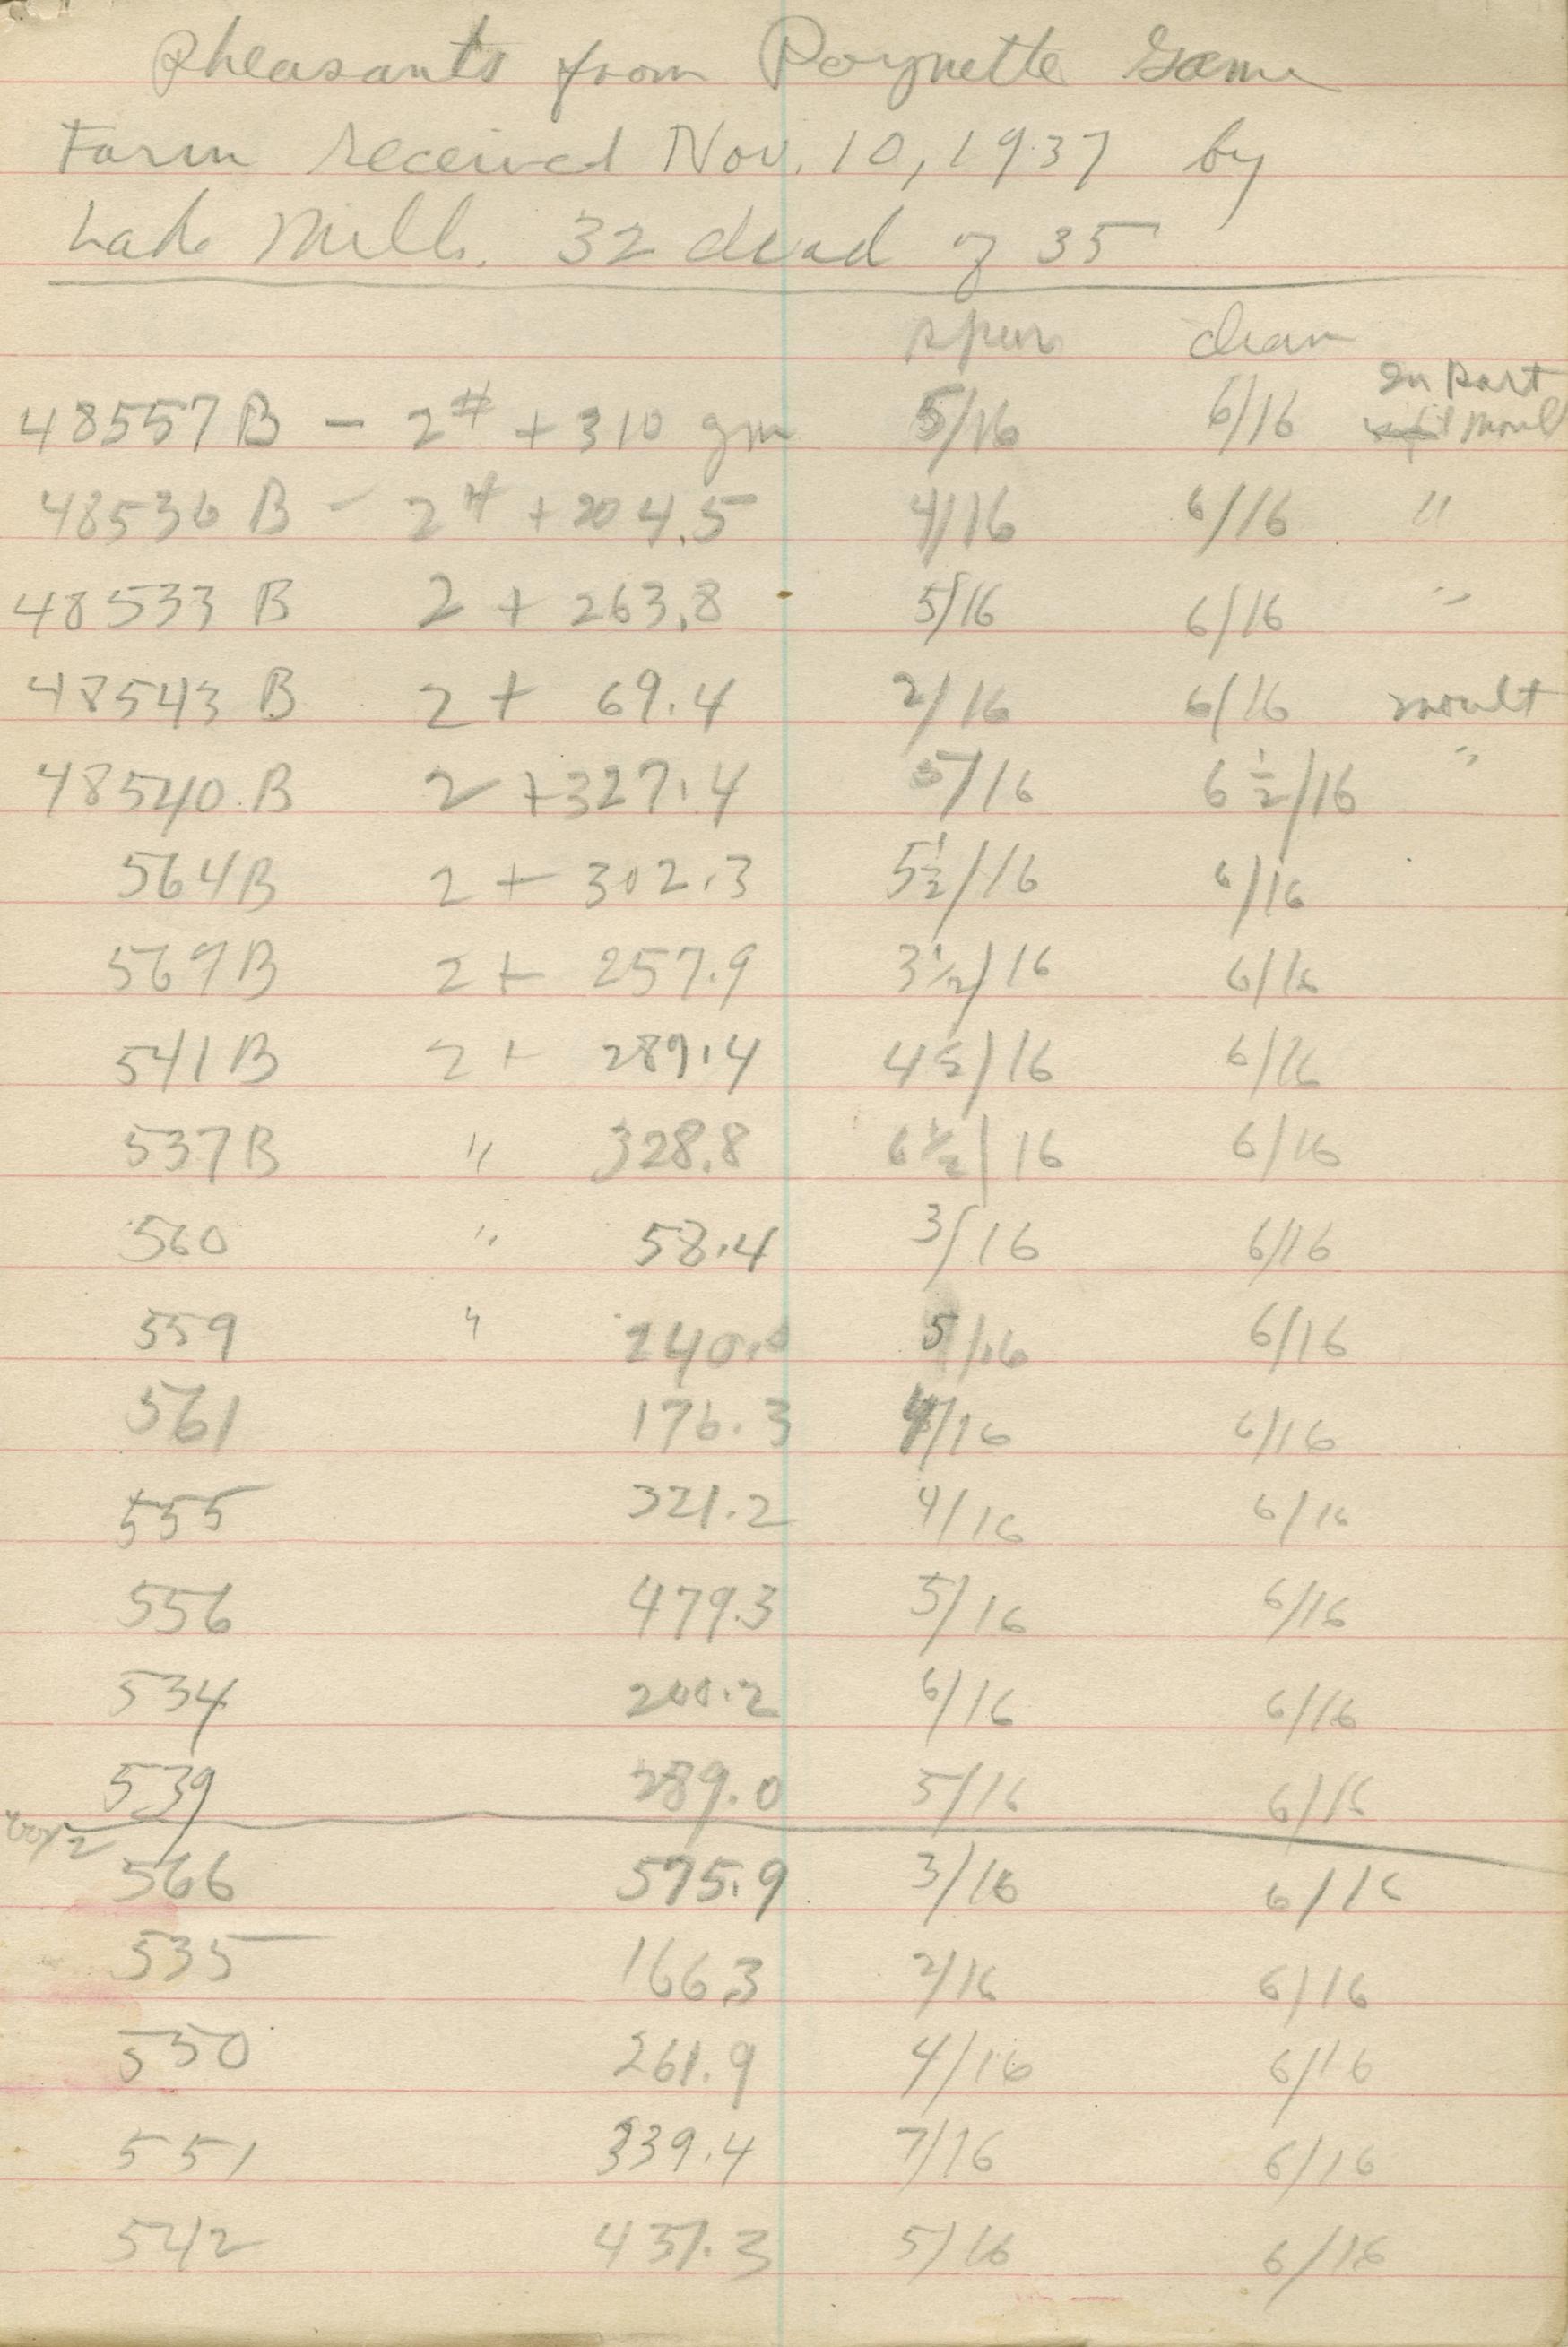 Pheasants from Poynette Game
Farm received Nov. 10, 1937 by
Lake Mills. 32 dead of 35
spur diam
In part
48557 B - 2# + 310 gm 5/16 6/16 moult
48536 B - 2# + 204.5 4/16 6/16 "
48533 B 2 + 263.8 5/16 6/16 "
48543 B 2 + 69.4 2/16 6/16 moult
48540 B 2 + 327.4 5/16 6 1/2/16 "
564 B 2 + 302.3 5 1/2/16 6/16
569 B 2 + 257.9 3 1/2/16 6/16
541 B 2 + 289.4 4 1/2/16 6/16
537 B " 328.8 6 1/2/16 6/16
560 " 58.4 3/16 6/16
559 " 240.0 5/16 6/16
561 176.3 4/16 6/16
555 321.2 4/16 6/16
556 479.3 5/16 6/16
534 200.2 6/16 6/16
539 289.0 5/16 6/16
566 575.9 3/16 6/16
535 166.3 2/16 6/16
550 261.9 4/16 6/16
551 339.4 7/16 6/16
542 437.3 5/16 6/16